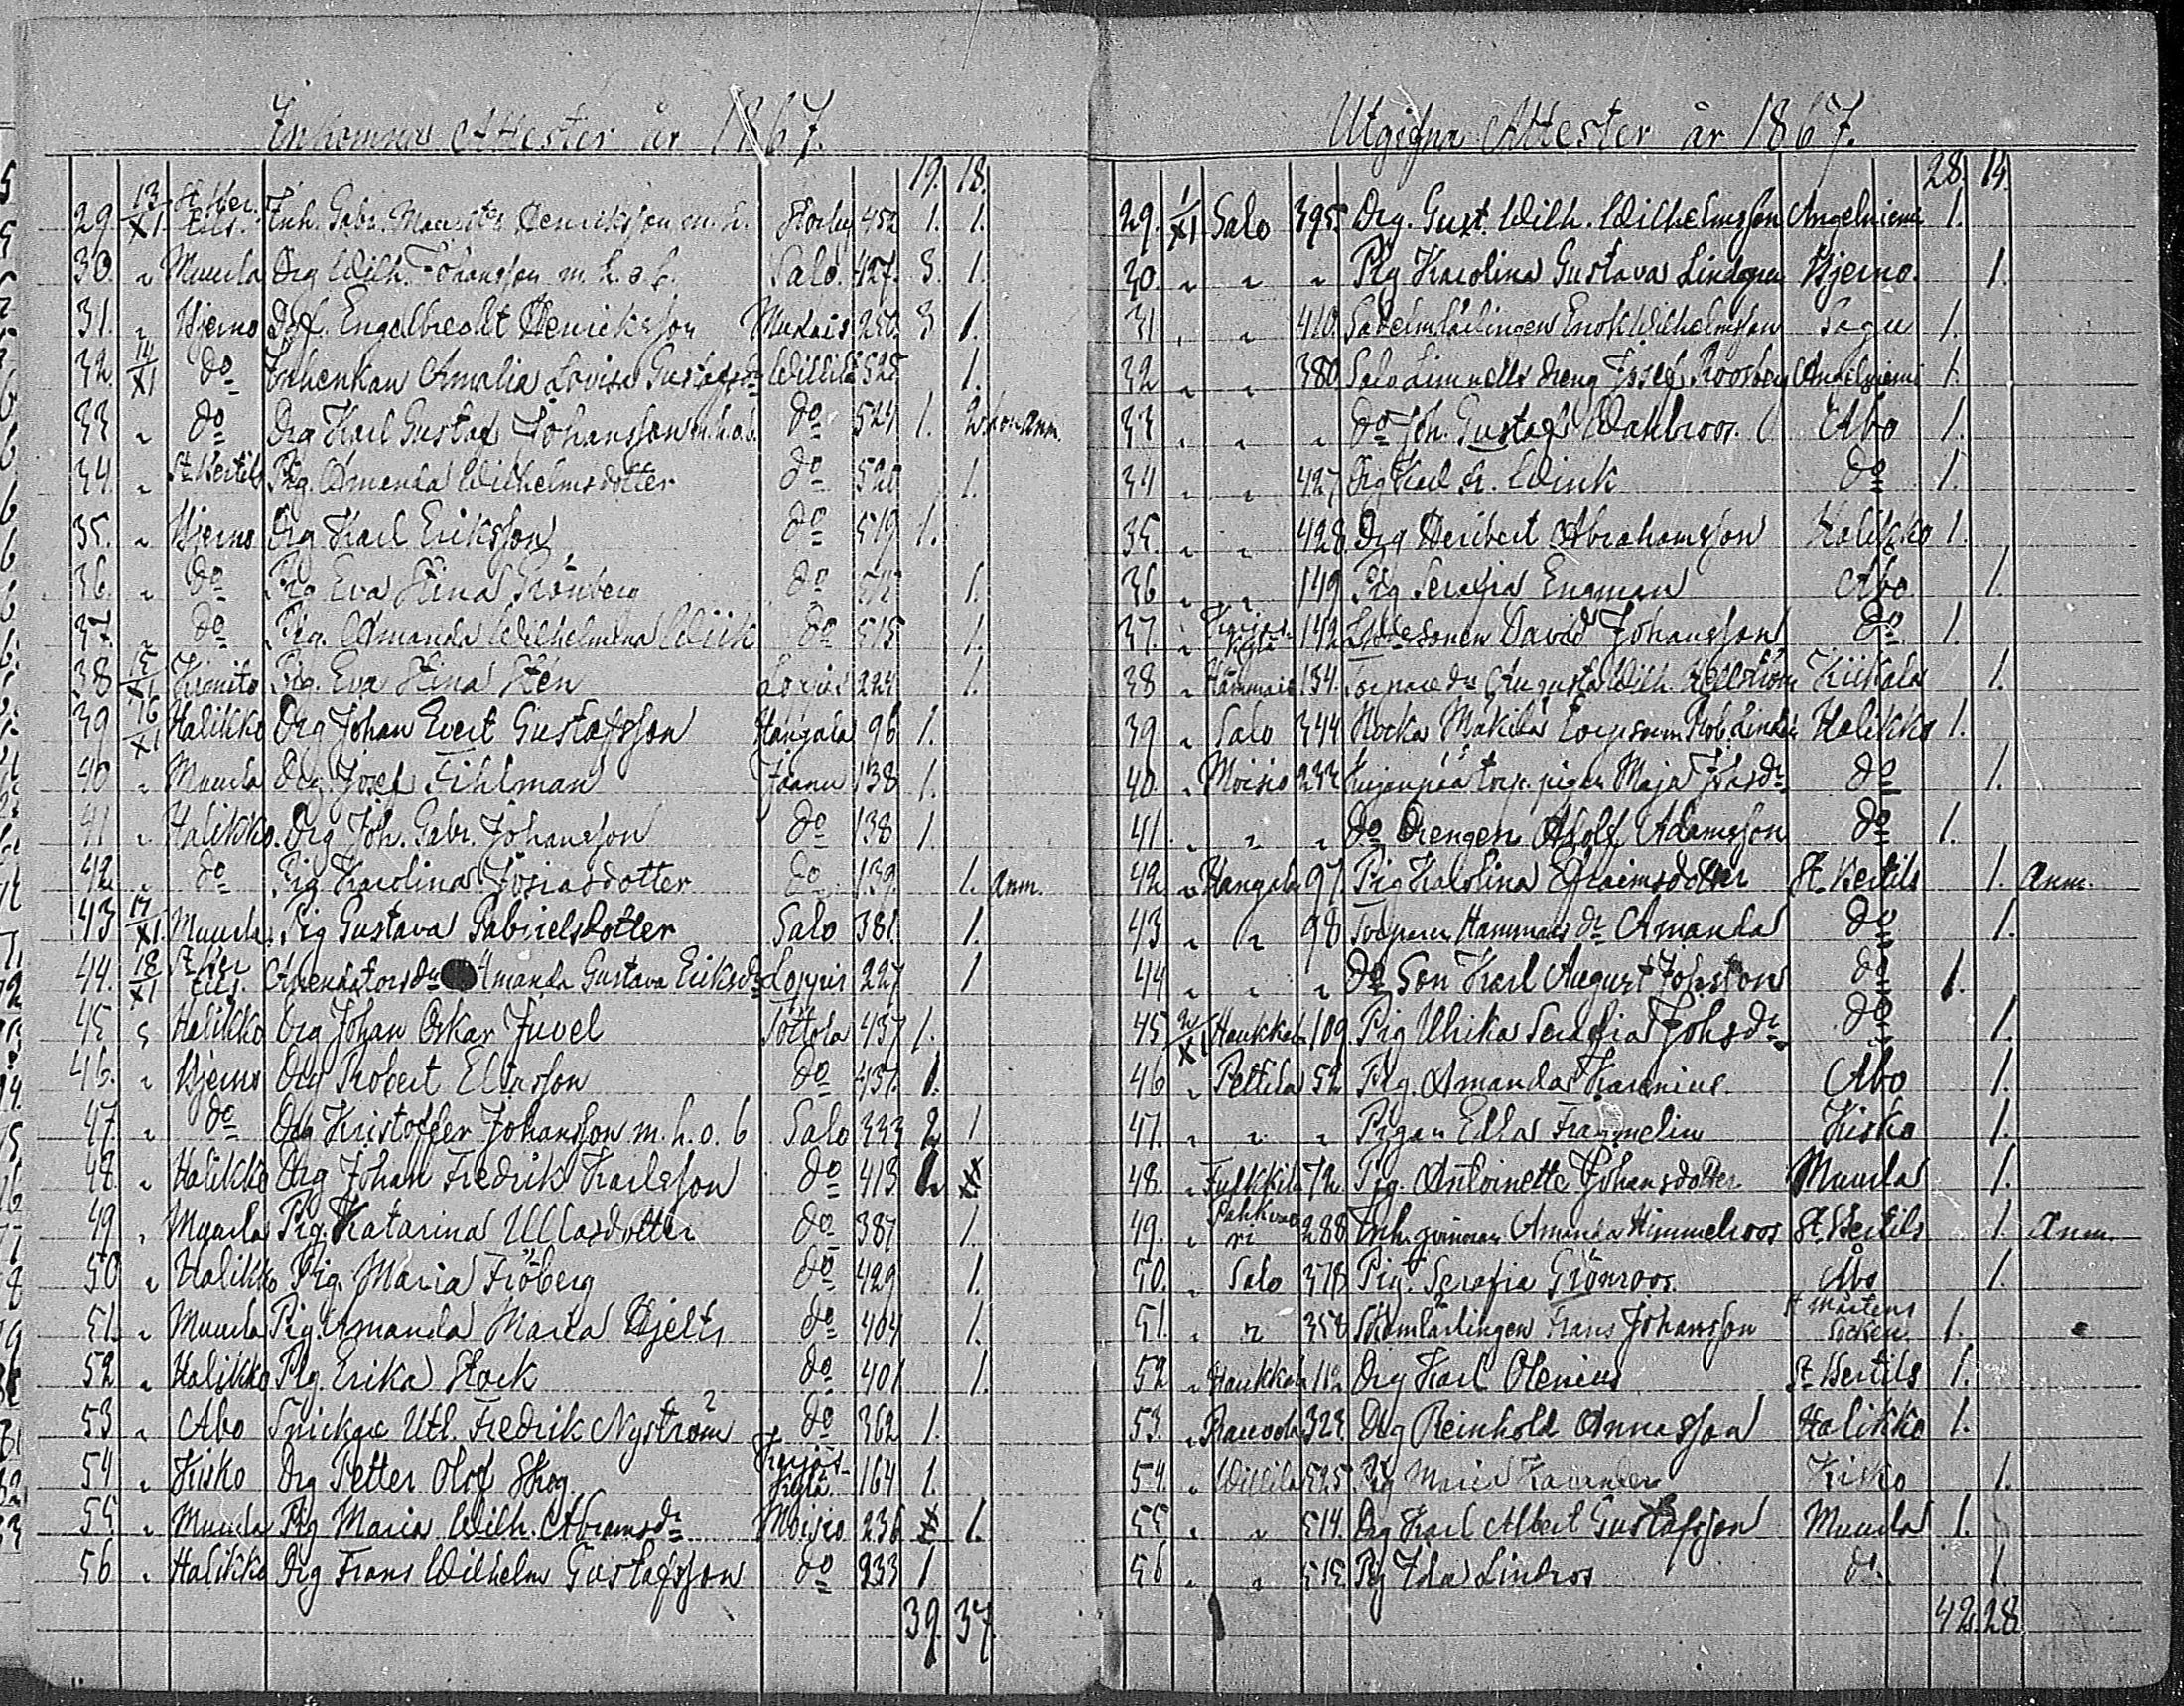 Inkomna Attester år 1867.
19. 18.
29. 13/XI St Ber-tils. Inh. Gabr. Maurits Henriksson m. h. 452 1. 1.
30. " Muurla Drg Wilh. Johansson m. h. o. b. Salo. 427. 3. 1.
31. " Kjerno Engelbrecht Henriksson 250. 3 1.
32. 14/XI do Inhenkan Amalia Lovisa Gustafsdr 525 1.
33 " do Drg Karl Gustaf Johansson m. h. o. b. do 524 1. 2. Anm.
34. " St Bertils Pig. Amanda Wilhelmsdotter do 520 1.
35. " Kjerno Drg Karl Eriksson do 519 1.
36. " do Pig Eva Stina Grönberg do 1.
37. " do Pig. Amanda Wilhelmina Wiik do 515 1.
38 15/XI Kimito Pig. Eva Stina Stén Loppis 224 1.
39 16/XI Halikko Drg Johan Evert Gustafsson Hangala 96 1.
40 " Muurla Drg. Josef Fihlman Joenu 138 1.
41 " Halikko. Drg Joh. Gabr. Johansson do 138 1.
42 " do Pig Karolina Josiasdotter do 139. 1. anm.
43 17/XI. Muurla. Pig Gustava Gabrielsdotter Salo 381. 1.
44. 18/XI St Ber-tils. Arendatorsdr Amanda Gustava Eriksdr Loppis 227 1
45 " Halikko Drg Johan Oskar Juvel Tottola 437 1.
46. " Kjerno Drg Robert Eliasson do 437. 1.
47. " do Drg Kristoffer Johansson m. h. o. b Salo 333 2 1
48. " Halikko Drg Johan Fredrik Karlsson do 413
49 " Muurla Pig. Katarina Ullasdotter do 387 1.
50 " Halikko Pig. Maria Fröberg do 429 1.
51. " Muurla Pig. Amanda Maria Hjelts do 404 1.
52 " Halikko Pig. Erika Stock do 401 1.
53 " Åbo Snickare Utl. Fredrik Nyström do 362 1.
54 " Kisko Drg Petter Olof Skog Karjas-kylä 164 1.
55 " Muurla Pig Maria Wilh. Abramsdr Moisio 236 1.
56 " Halikko Drg Frans Wilhelm Gustafsson do 233 1
39. 37.
Utgifna Attester år 1867.
28. 14.
29. 1/XI Salo 395. Drg. Gust. Wilh. Wilhelmsson Angelniemi 1.
30. " " " Pig Karolina Gustava Lindgren Kjerno. 1.
31 " " 410. Enok Wilhelmsson Sagu 1.
32 " " 380 Salo Limnells dreng Josef Roosberg Angelniemi 1.
33 " " " do Joh. Gustaf Wahlroos. Åbo 1.
34 " " 427 Drg Karl Wink do 1.
35. " " 428 Drg Heribert Abrahamsson Halikko 1.
36 " " 149 Pig Serafia Engman Åbo 1.
37. " Karjas-kylä 142 David Johansson do 1.
38 " Hämmäis 154. Augusta Wilh. Kiikala 1.
39 " Salo 344 Halikko 1.
40. " Moisio 232 torp. pigan Maja Johsdr do 1.
41. " " " do Drengen Adolf Adamsson do 1.
42 " Hangala 97 Pig Karolina Efraimsdotter St Bertils 1. Anm.
43 " " 98 Torparen Hammars dr Amanda do 1.
44 " " " do Son Karl August Johsson do 1.
45 2/XI Haukkala 109 Pig Ulrika Serafia Johsdr do 1.
46 " Pettila 52 Pig. Amanda Åbo 1.
47. " " " Pigan Edla Frammelin Kisko 1.
48. " 72 Pig. Antoinette Johansdotter Muurla 1.
49. " Pahkva-ri 288 Inh. qvinnan Amanda Himmelroos St Bertils 1. Anm.
50. " Salo 378 Pig. Serafia Grönroos. Åbo 1.
51. " " 358 Frans Johansson St Mårtens Socken. 1.
52 " Haukkala 112 Drg Karl Olenius St Bertils 1.
53. " 323. Drg Reinhold Annasson Halikko 1.
54. " 525 Pig Maria Kisko 1.
55 " " 514. Drg Karl Albert Gustafsson Muurla 1.
56 " " 515. Pig Ida Lindros do. 1
42. 28.